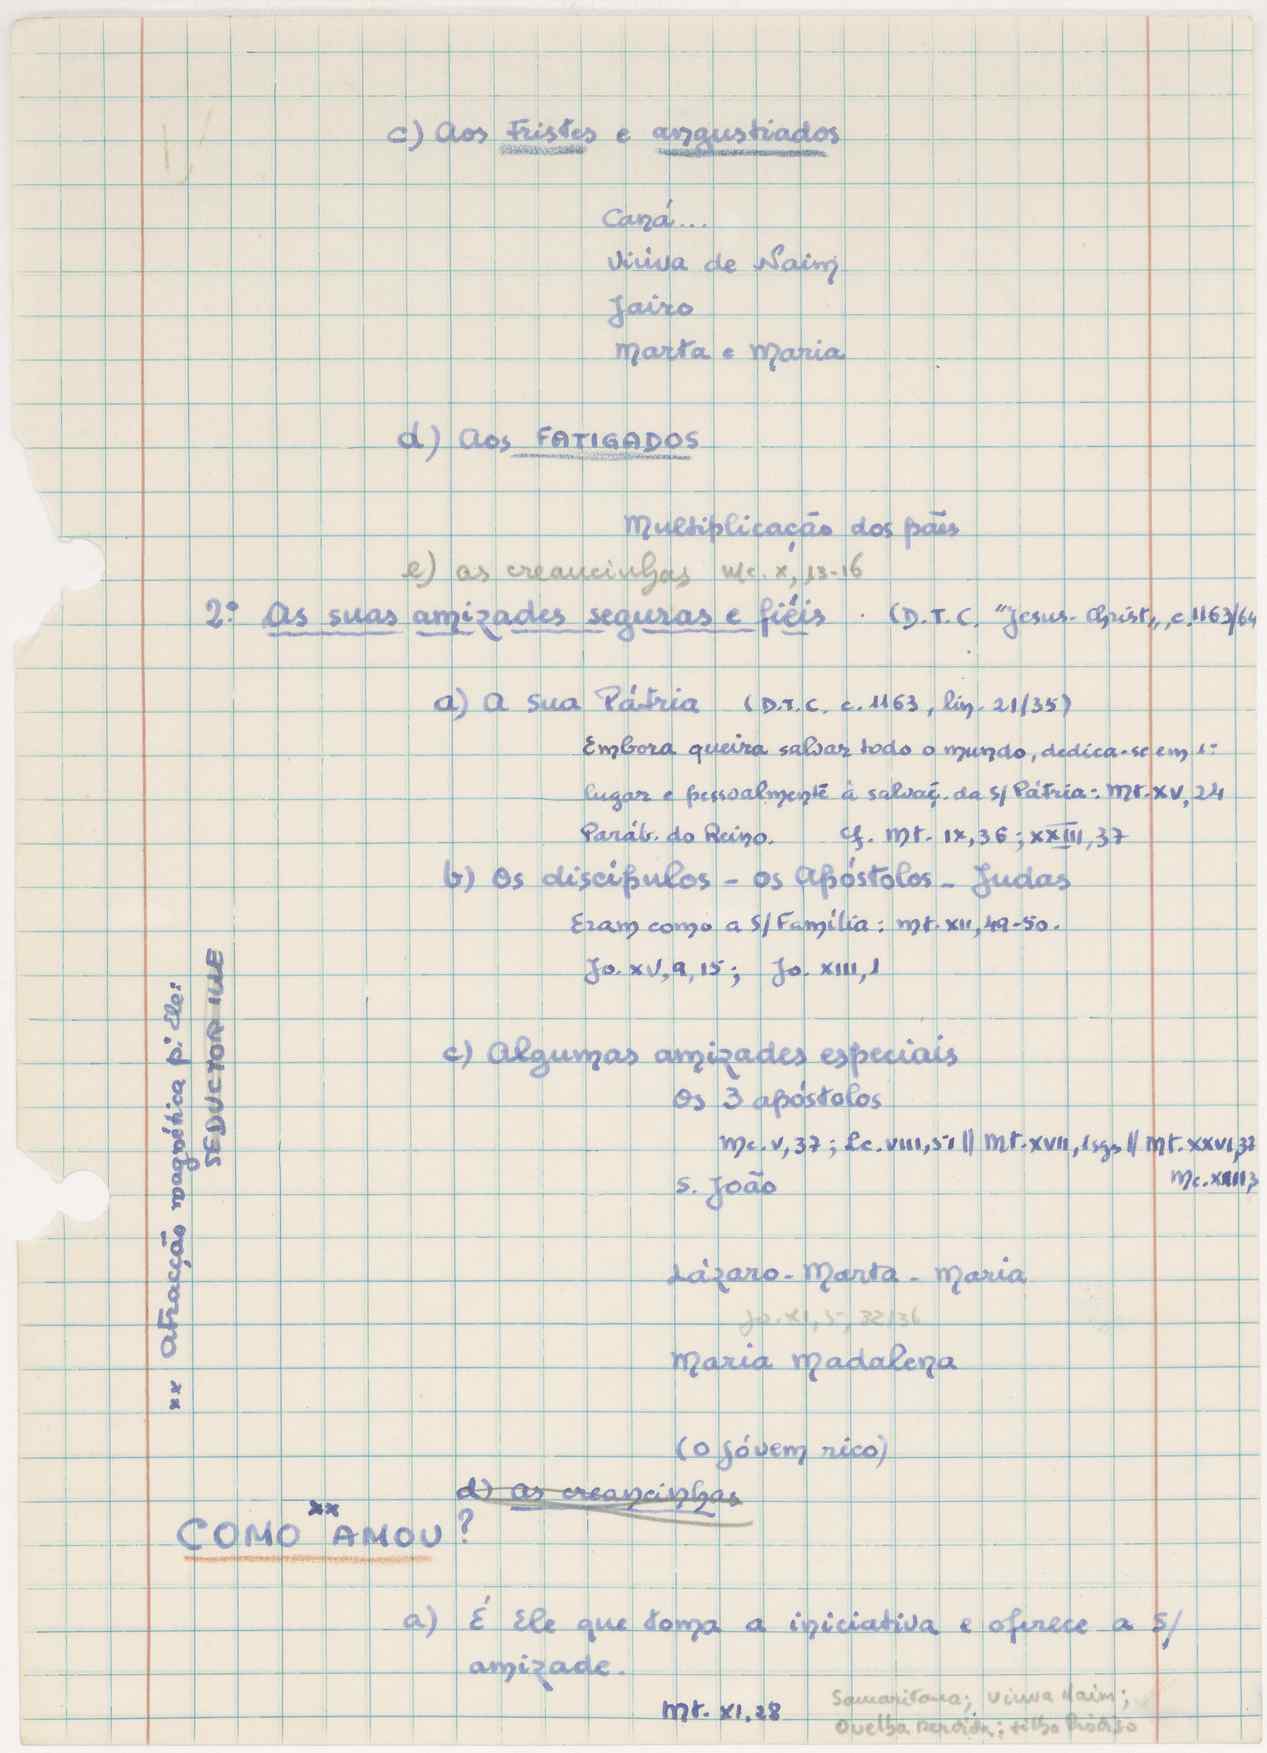 c) Aos Tristes e angustiados
Caná...
Viúva de Naim
Jairo
Marta e Maria
d) Aos FATIGADOS
Multiplicação dos pães
e) as creancinhas Mc. X, 13-16
2º As suas amizades seguras e fiéis. (D.T.C. "Jesus-Christ", c.1163/64
a) A sua Pátria (D.T.C. c. 1163, lin. 21/35)
Embora queira salvar todo o mundo, dedica-se em 1º
lugar e pessoalmente à salvaç. da S/ Pátria: Mt. XV, 24
Paráb. do Reino. Cf. Mt. IX, 36; XXIII, 37
b) Os discípulos - os Apóstolos - Judas
Eram como a S/ Família: Mt. XII, 49-50.
Jo. XV, 9, 15; Jo. XIII, 1
c) Algumas amizades especiais
Os 3 apóstolos
Mc. V, 37; Lc. VIII, 51 // Mt. XVII, 1sgs // Mt. XXVI, 37
S. João
Lázaro - Marta - Maria
Jo. XI, 5, 32/36
Maria Madalena
(O jóvem rico)
d) as creancinhas
xx
COMO AMOU?
a) É Ele que toma a iniciativa e oferece a S/
amizade.
Mt. XI, 28
Samaritana; Viúva Naim;
Ovelha Perdida; Filho Pródigo
xx Atracção magnética p. Ele:
SEDUCTOR ILLE